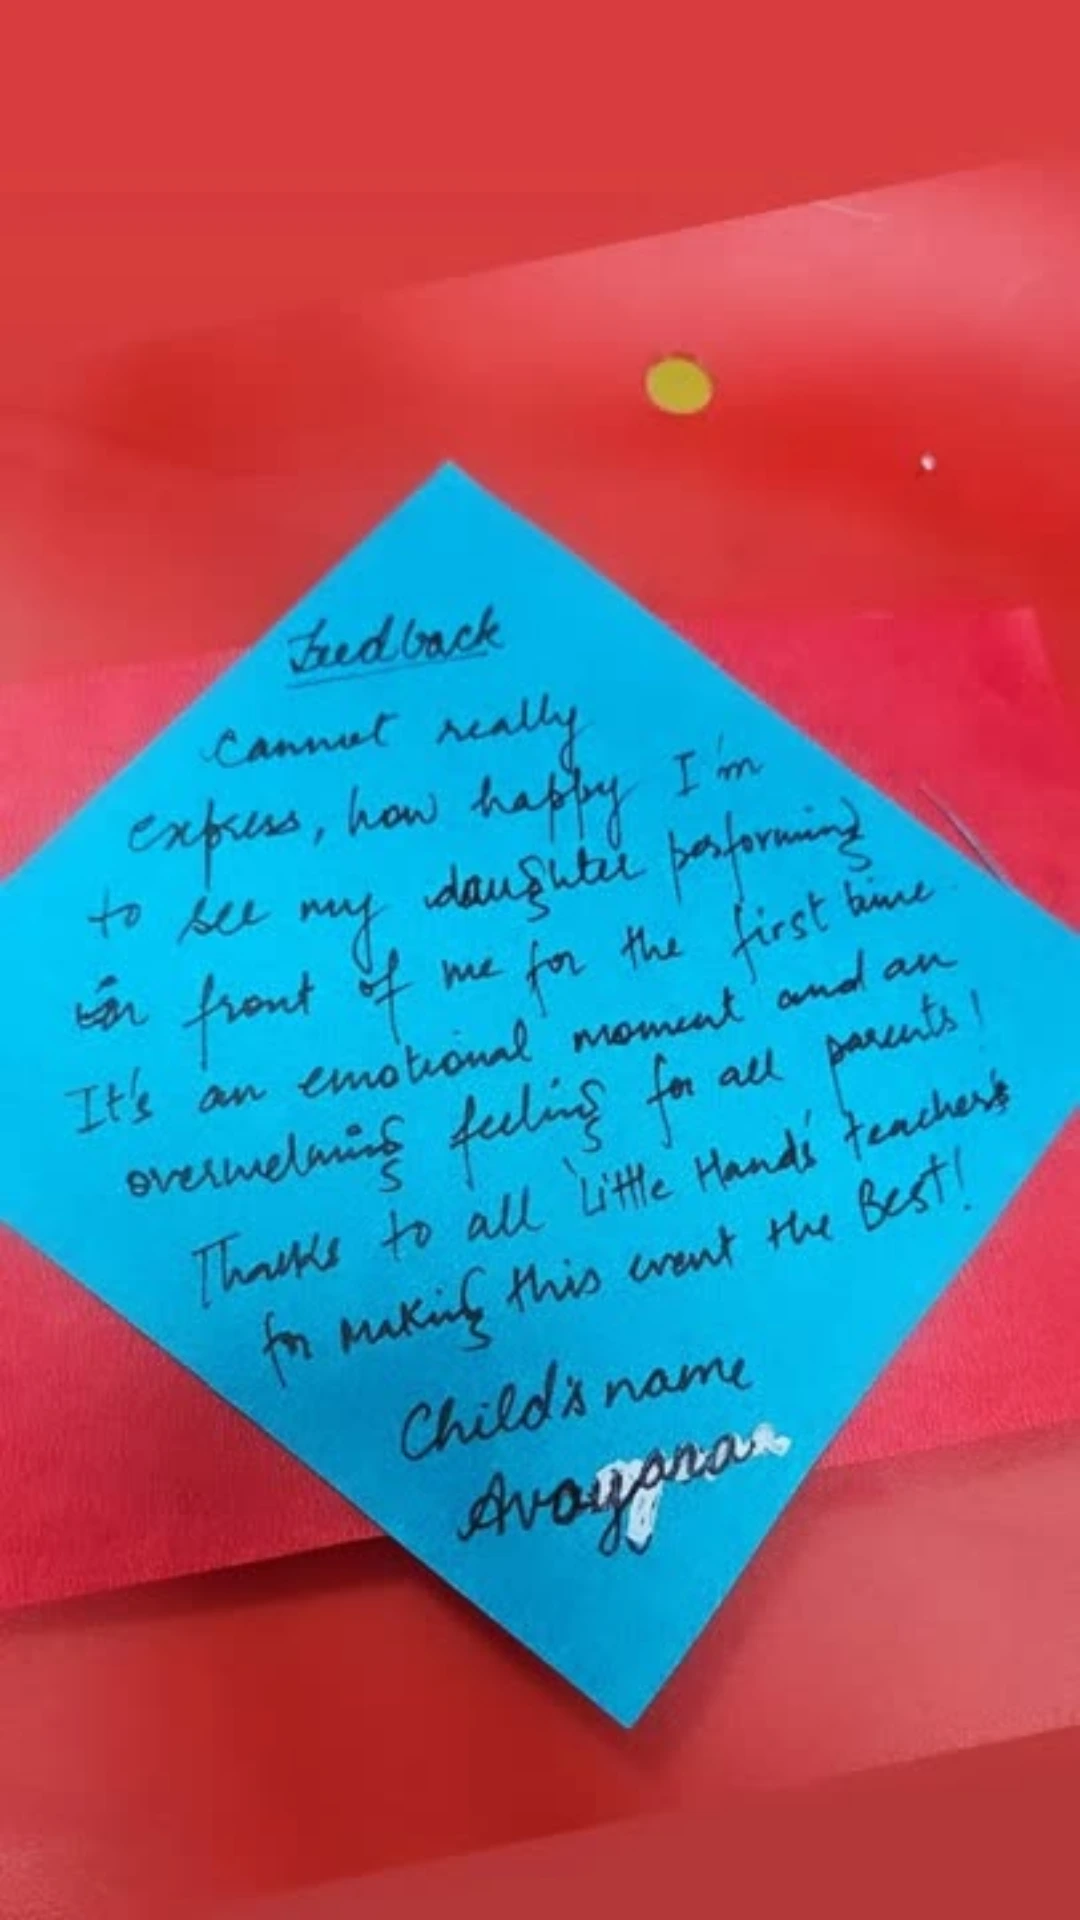 Feedback
cannot really
express, how happy I'm
to see my daughter performing
in front of me for the first time
It's an emotional moment and an
overwelming feeling for all parents!
Thanks to all 'Little Hands' teacher's
for making this event the Best!
Child's name